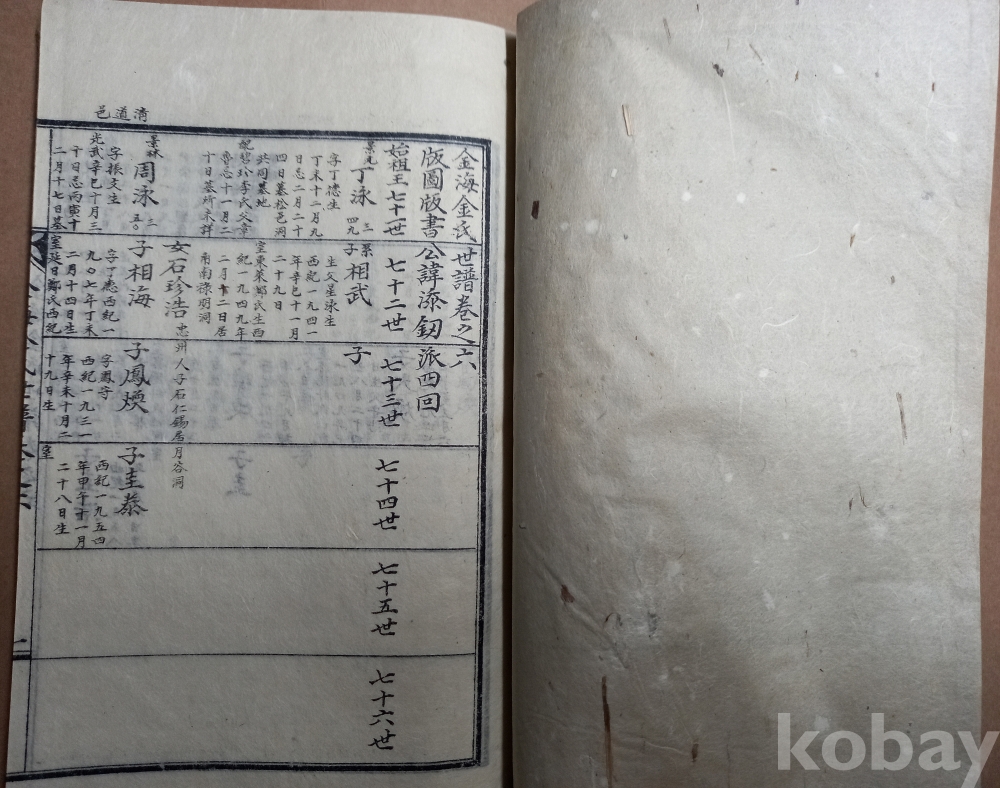 清道邑
金海金氏世譜卷之六
版圖版書公諱添釰派四回
始祖王七十一世
七十二世
七十三世
七十四世
七十五世
七十六世
丁泳
三四九
字丁德生
丁未十二月九
日忌二月二十
四日墓松邑洞
共同墓地
十日墓所未詳
系子相武
生父星泳生
西紀一九四一
年辛巳十一月
二十九日
室東萊鄭氏生西
紀一九四九年
二月十二日居
子
景林周泳
三五〇
字振文生
光武辛巳十月三
十日忌丙寅十
二月十七日墓
女石珍浩
忠州人子石仁錫居月谷洞
子相海
字了悳西紀一
九〇七年丁未
二月十四日生
室延日鄭氏西紀
子鳳煐
字鳳守
西紀一九三一
年辛未十月二
十九日生
室
子圭泰
西紀一九五四
年甲午十一月
二十八日生
kobay